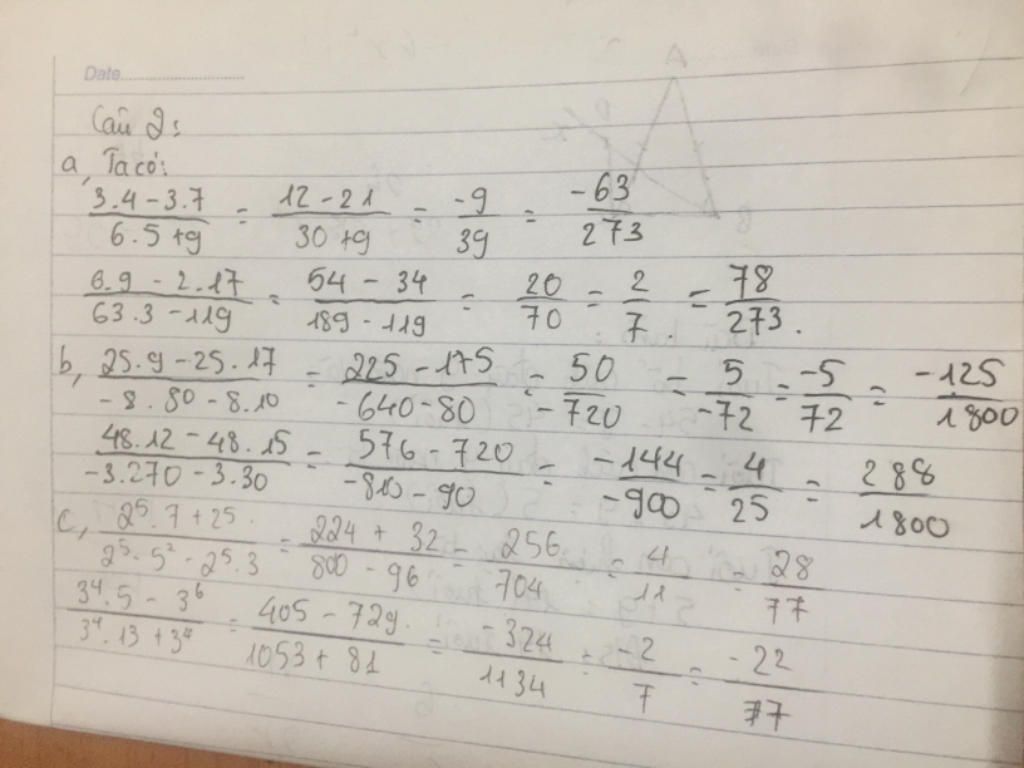 Date
Câu 2:
a, Ta có:
\frac{3.4 - 3.7}{6.5 + 9} = \frac{12 - 21}{30 + 9} = \frac{-9}{39} = \frac{-63}{273}
\frac{6.9 - 2.17}{63.3 - 119} = \frac{54 - 34}{189 - 119} = \frac{20}{70} = \frac{2}{7} = \frac{78}{273}.
b, \frac{25.9 - 25.17}{-8.80 - 8.10} = \frac{225 - 175}{-640 - 80} = \frac{50}{-720} = \frac{5}{-72} = \frac{-5}{72} = \frac{-125}{1800}
\frac{48.12 - 48.15}{-3.270 - 3.30} = \frac{576 - 720}{-810 - 90} = \frac{-144}{-900} = \frac{4}{25} = \frac{288}{1800}
c, \frac{2^5.7 + 25.}{2^5.5^2 - 2^5.3} = \frac{224 + 32}{800 - 96} = \frac{256}{704} = \frac{4}{11} = \frac{28}{77}
\frac{3^4.5 - 3^6}{3^4.13 + 3^4} = \frac{405 - 729.}{1053 + 81} = \frac{-324}{1134} = \frac{-2}{7} = \frac{-22}{77}